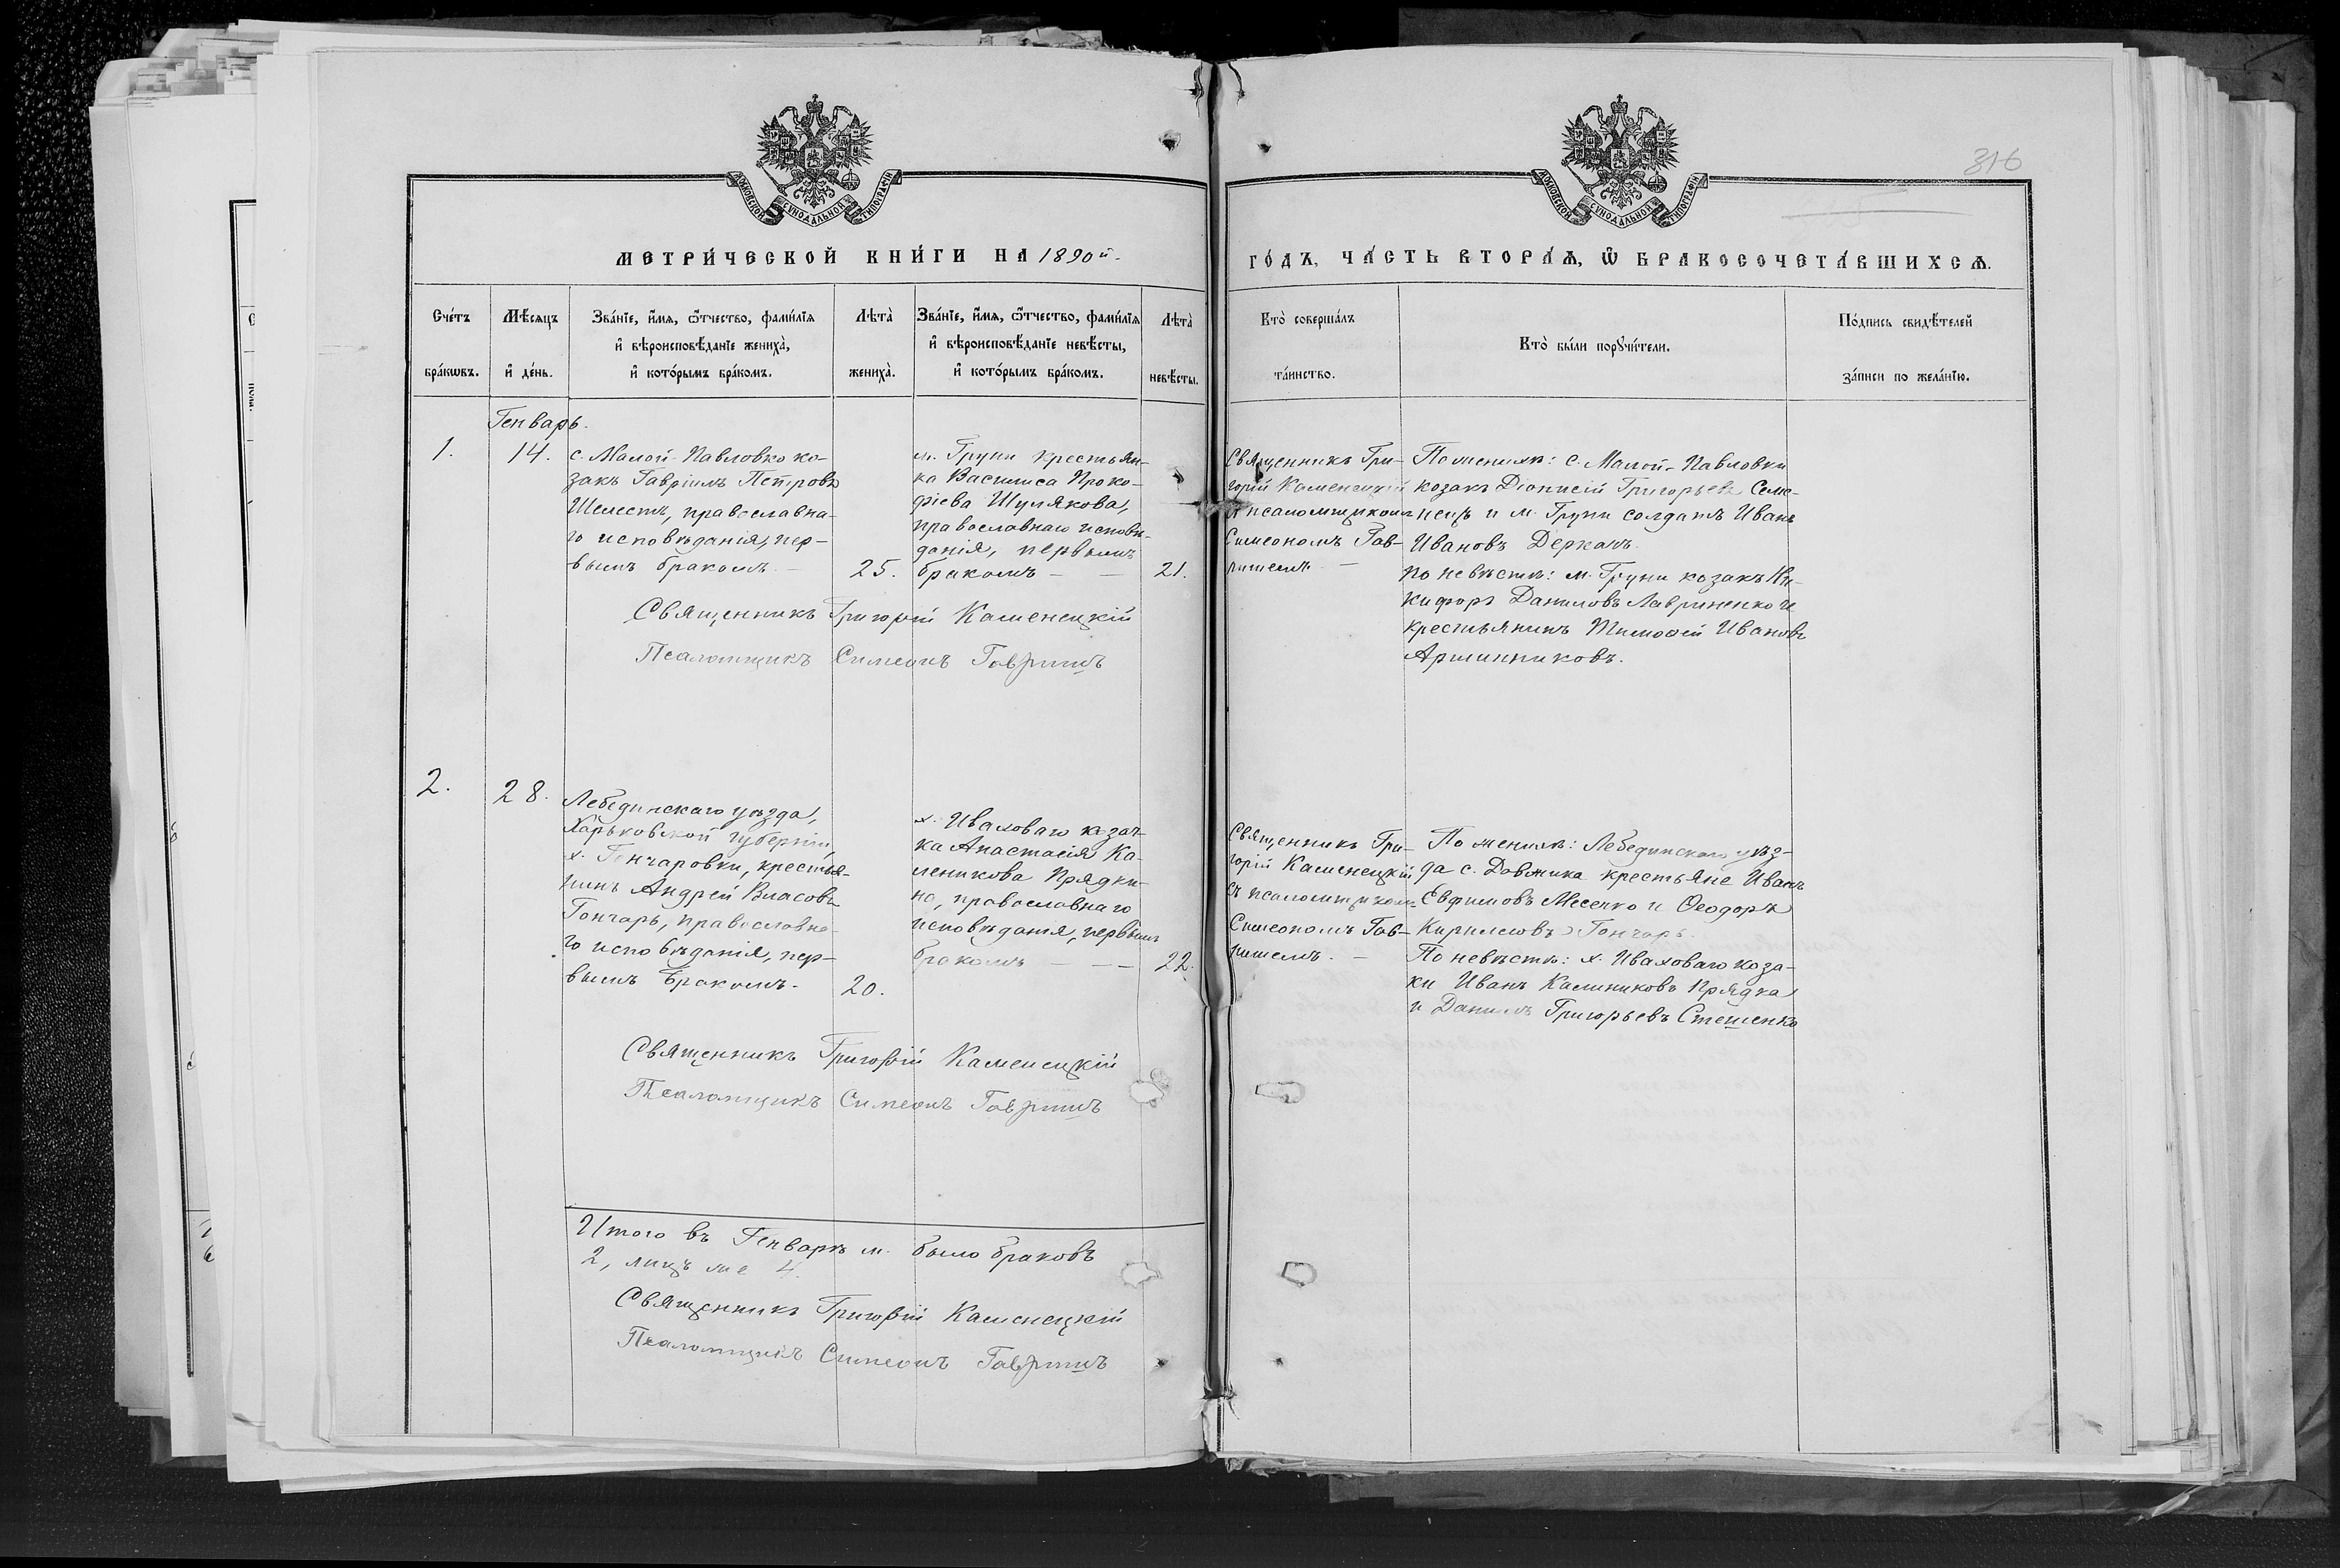 316
МОСКОВСКОЙ СѴНОДАЛЬНОЙ ТИПОГРАФІИ
МОСКОВСКОЙ СѴНОДАЛЬНОЙ ТИПОГРАФІИ
МЕТРИ́ЧЕСКОЙ КНИ́ГИ НА 1890й.
ГО́ДЪ, ЧА́СТЬ ВТОРА́Ѧ, Ѽ БРАКОСОЧЕТА́ВШИХСѦ.
Сче́тъ бра́кѡвъ.
Мѣ́сяцъ и҆ де́нь.
Зва́нїе, и҆́мя, ѻ҆́тчество, фами́лїя
и҆ вѣроисповѣ́данїе жениха̀,
и҆ кото́рымъ бра́комъ.
Лѣта̀ жениха̀.
Зва́нїе, и҆́мя, ѻ҆́тчество, фами́лїя
и҆ вѣроисповѣ́данїе невѣ́сты,
и҆ кото́рымъ бра́комъ.
Лѣта̀ невѣ́сты.
Кто̀ соверша́лъ
та́инство.
Кто̀ бы́ли порꙋчи́тели.
По́дпись свидѣ́телей
за́писи по жела́нїю.
Генварь.
1.
14.
с. Малой-Павловки ко-
закъ Гавріилъ Петровъ
Шелестъ, православна-
го исповѣданія, пер-
вымъ бракомъ. —
25.
м. Груни крестьян-
ка Василиса Проко-
фіева Шулякова,
православнаго исповѣ-
данія, первымъ
бракомъ — —
21.
Священникъ Гри-
горій Каменецкій
съ псаломщикомъ
Симеономъ Гав-
ришемъ. —
По женихѣ: с. Малой-Павловки
козакъ Діонисій Григорьевъ Семе-
нецъ и м. Груни солдатъ Иванъ
Ивановъ Деркачъ.
По невѣстѣ: м. Груни козакъ Ни-
кифоръ Даниловъ Лавриненко и
крестьянинъ Тимоѳій Ивановъ
Аршинниковъ.
Священникъ Григорій Каменецкій
Псаломщикъ Симеонъ Гавришъ
2.
28.
Лебединскаго уѣзда,
Харьковской губерніи,
х. Гончаровки, крестья-
нинъ Андрей Власовъ
Гончаръ, православна-
го исповѣданія, пер-
вымъ бракомъ.
20.
х. Иваховаго козач-
ка Анастасія Ка-
леникова Прядки-
на, православнаго
исповѣданія, первымъ
бракомъ — — —
22.
Священникъ Гри-
горій Каменецкій
съ псаломщикомъ
Симеономъ Гав-
ришемъ. —
По женихѣ: Лебединскаго уѣз-
да с. Довжика крестьяне Иванъ
Евфимовъ Месечко и Ѳеодоръ
Кириловъ Гончаръ.
По невѣстѣ: х. Иваховаго коза-
ки Иванъ Калиниковъ Прядка
и Даніилъ Григорьевъ Стешенко
Священникъ Григорій Каменецкій
Псаломщикъ Симеонъ Гавришъ
Итого въ Генварѣ м. было браковъ
2, лицъ же 4.
Священникъ Григорій Каменецкій
Псаломщикъ Симеонъ Гавришъ